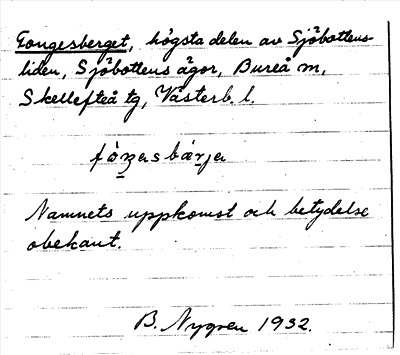 Fongesberget, högsta delen av Sjöbottens-
liden, Sjöbottens ägor, Bureå m,
Skellefteå tg, Västerb. l.
Namnets uppkomst och betydelse
obekant.
B. Nygren 1932.